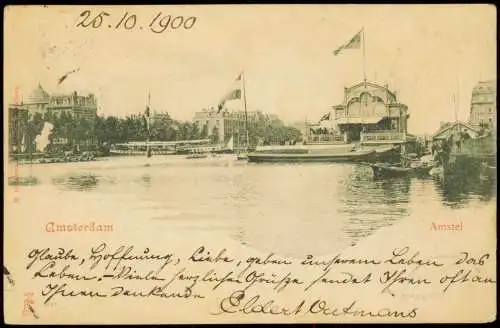 25.10.1900
Amsterdam
Amstel
Glaube, Hoffnung, Liebe, geben unserem Leben das
Leben. - Viele herzliche Grüsse sendet Ihnen oft an
Ihnen denkende
Eldert Outmans